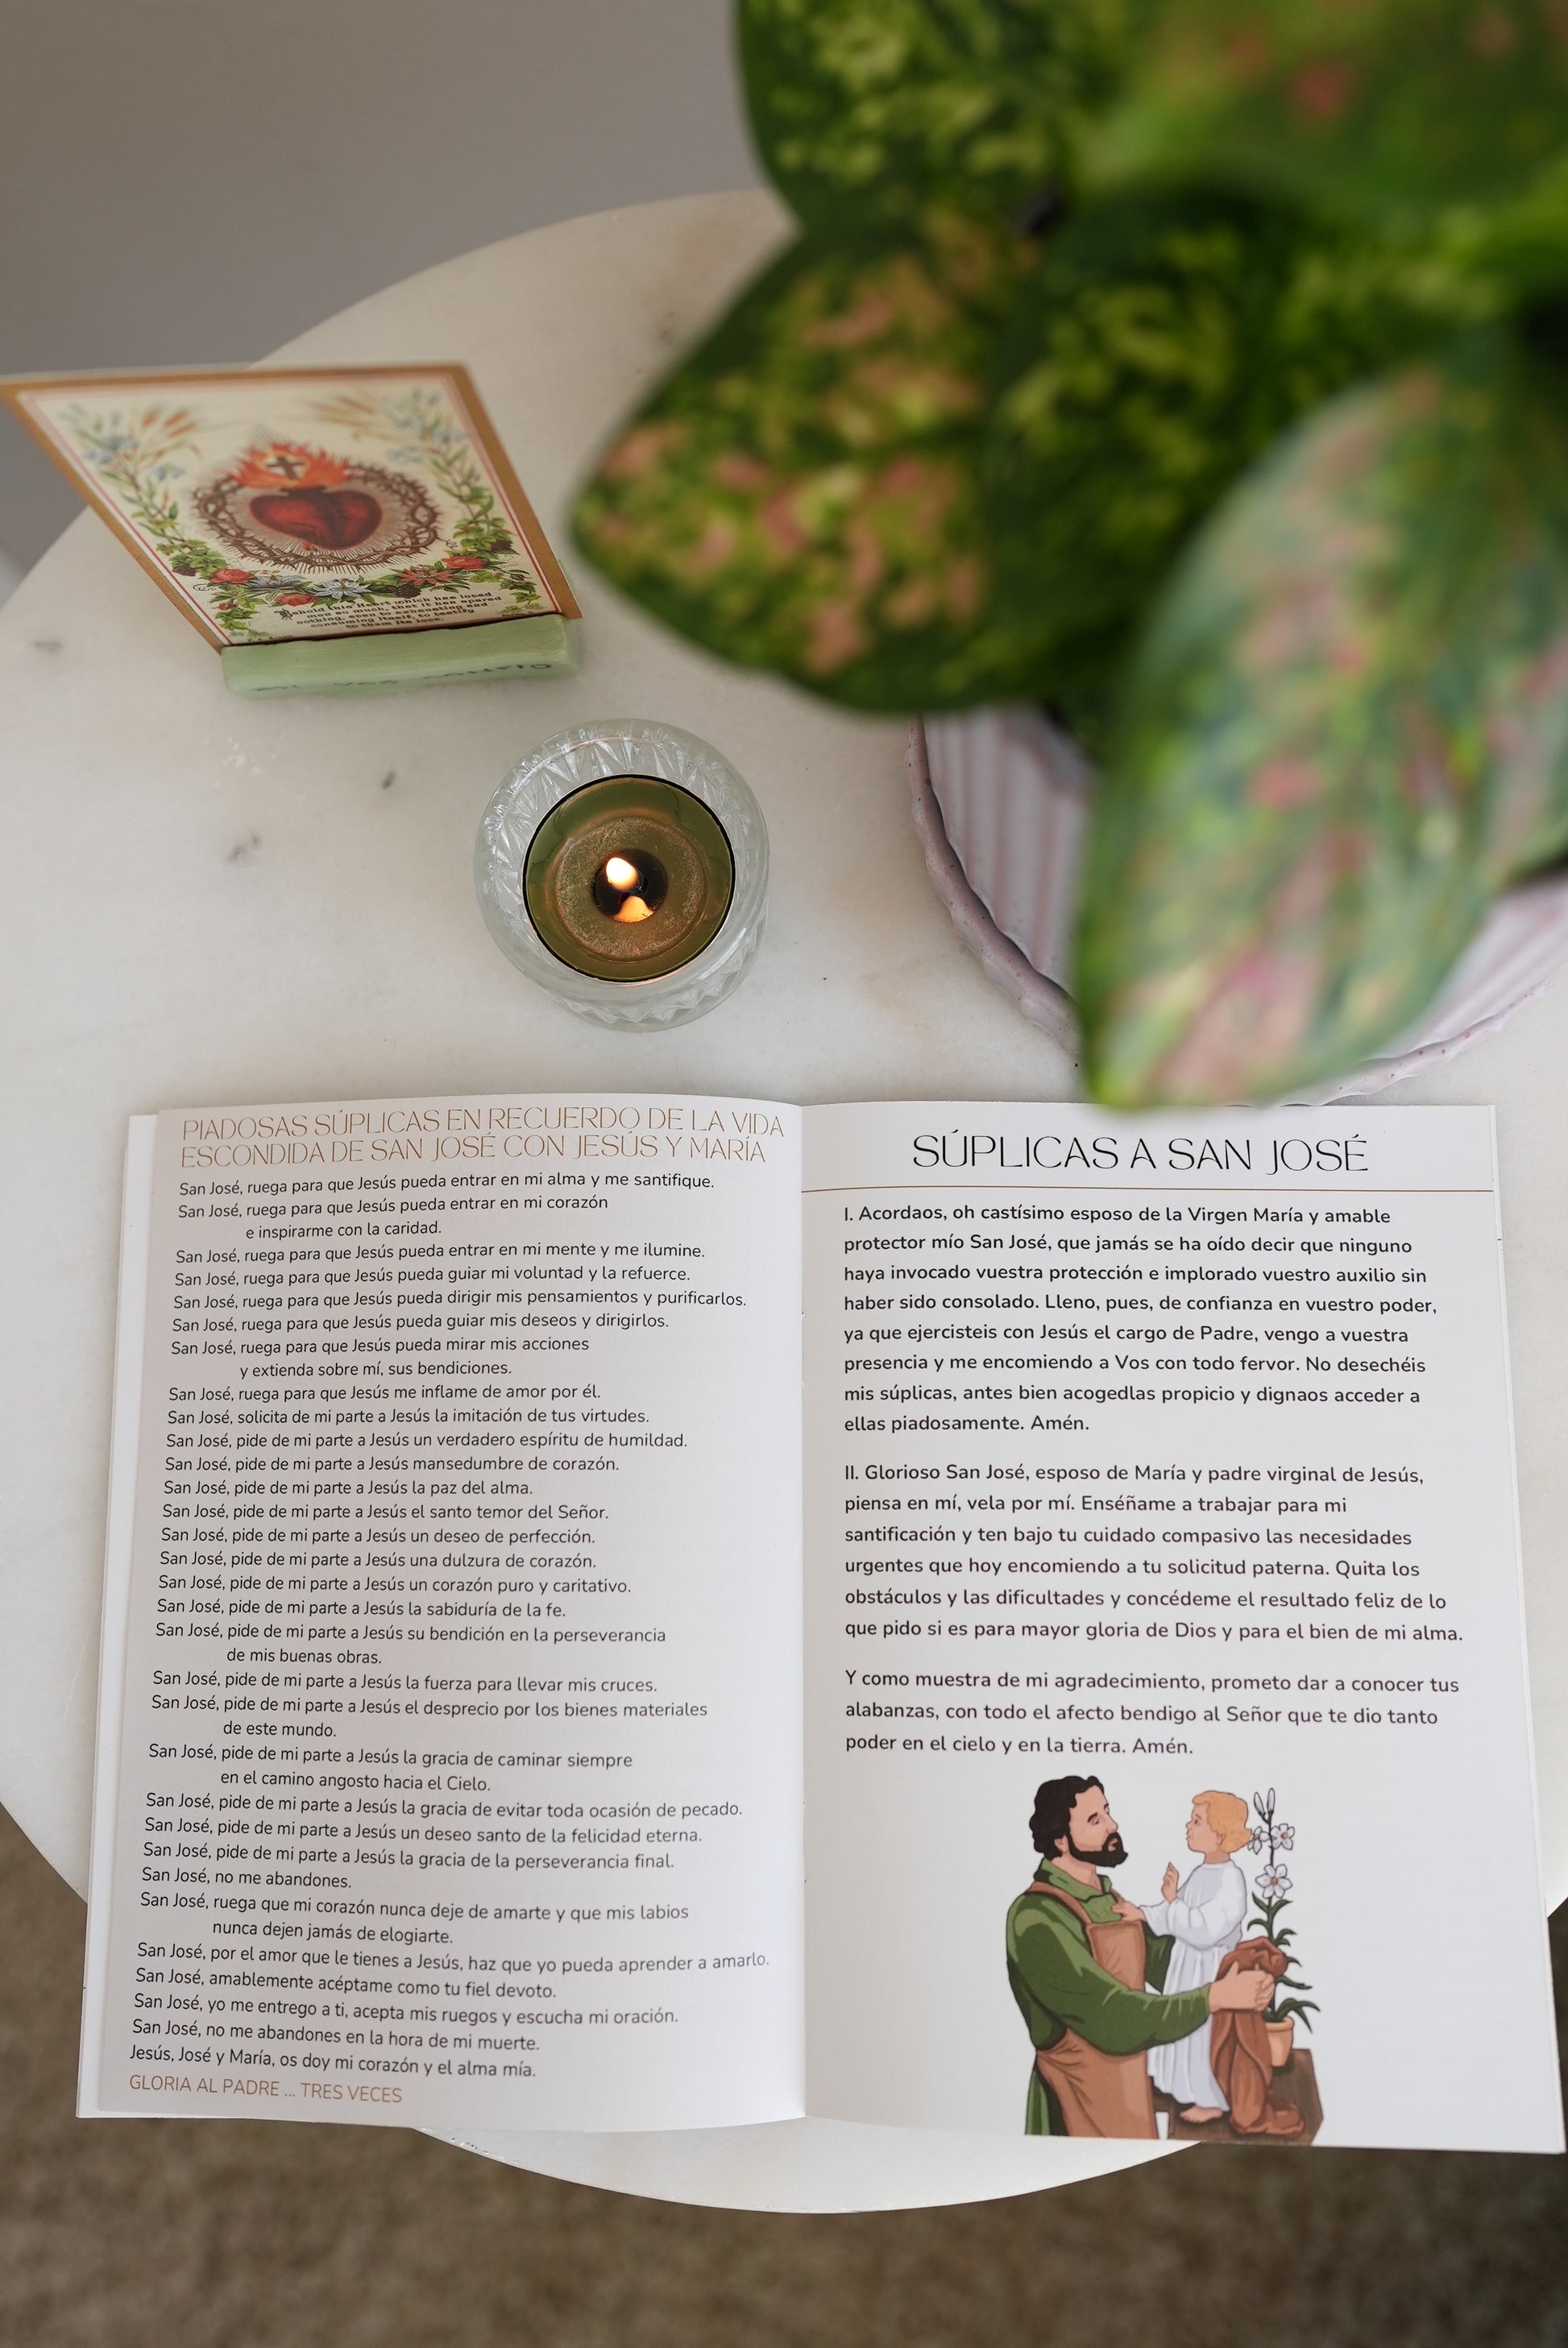 Behold this Heart which has loved
men so much, that it has spared
nothing, even to exhausting and
consuming Itself, to testify
to them Its love.
PIADOSAS SÚPLICAS EN RECUERDO DE LA VIDA
ESCONDIDA DE SAN JOSÉ CON JESÚS Y MARÍA
San José, ruega para que Jesús pueda entrar en mi alma y me santifique.
San José, ruega para que Jesús pueda entrar en mi corazón
e inspirarme con la caridad.
San José, ruega para que Jesús pueda entrar en mi mente y me ilumine.
San José, ruega para que Jesús pueda guiar mi voluntad y la refuerce.
San José, ruega para que Jesús pueda dirigir mis pensamientos y purificarlos.
San José, ruega para que Jesús pueda guiar mis deseos y dirigirlos.
San José, ruega para que Jesús pueda mirar mis acciones
y extienda sobre mí, sus bendiciones.
San José, ruega para que Jesús me inflame de amor por él.
San José, solicita de mi parte a Jesús la imitación de tus virtudes.
San José, pide de mi parte a Jesús un verdadero espíritu de humildad.
San José, pide de mi parte a Jesús mansedumbre de corazón.
San José, pide de mi parte a Jesús la paz del alma.
San José, pide de mi parte a Jesús el santo temor del Señor.
San José, pide de mi parte a Jesús un deseo de perfección.
San José, pide de mi parte a Jesús una dulzura de corazón.
San José, pide de mi parte a Jesús un corazón puro y caritativo.
San José, pide de mi parte a Jesús la sabiduría de la fe.
San José, pide de mi parte a Jesús su bendición en la perseverancia
de mis buenas obras.
San José, pide de mi parte a Jesús la fuerza para llevar mis cruces.
San José, pide de mi parte a Jesús el desprecio por los bienes materiales
de este mundo.
San José, pide de mi parte a Jesús la gracia de caminar siempre
en el camino angosto hacia el Cielo.
San José, pide de mi parte a Jesús la gracia de evitar toda ocasión de pecado.
San José, pide de mi parte a Jesús un deseo santo de la felicidad eterna.
San José, pide de mi parte a Jesús la gracia de la perseverancia final.
San José, no me abandones.
San José, ruega que mi corazón nunca deje de amarte y que mis labios
nunca dejen jamás de elogiarte.
San José, por el amor que le tienes a Jesús, haz que yo pueda aprender a amarlo.
San José, amablemente acéptame como tu fiel devoto.
San José, yo me entrego a ti, acepta mis ruegos y escucha mi oración.
San José, no me abandones en la hora de mi muerte.
Jesús, José y María, os doy mi corazón y el alma mía.
GLORIA AL PADRE ... TRES VECES
SÚPLICAS A SAN JOSÉ
I. Acordaos, oh castísimo esposo de la Virgen María y amable
protector mío San José, que jamás se ha oído decir que ninguno
haya invocado vuestra protección e implorado vuestro auxilio sin
haber sido consolado. Lleno, pues, de confianza en vuestro poder,
ya que ejercisteis con Jesús el cargo de Padre, vengo a vuestra
presencia y me encomiendo a Vos con todo fervor. No desechéis
mis súplicas, antes bien acogedlas propicio y dignaos acceder a
ellas piadosamente. Amén.
II. Glorioso San José, esposo de María y padre virginal de Jesús,
piensa en mí, vela por mí. Enséñame a trabajar para mi
santificación y ten bajo tu cuidado compasivo las necesidades
urgentes que hoy encomiendo a tu solicitud paterna. Quita los
obstáculos y las dificultades y concédeme el resultado feliz de lo
que pido si es para mayor gloria de Dios y para el bien de mi alma.
Y como muestra de mi agradecimiento, prometo dar a conocer tus
alabanzas, con todo el afecto bendigo al Señor que te dio tanto
poder en el cielo y en la tierra. Amén.